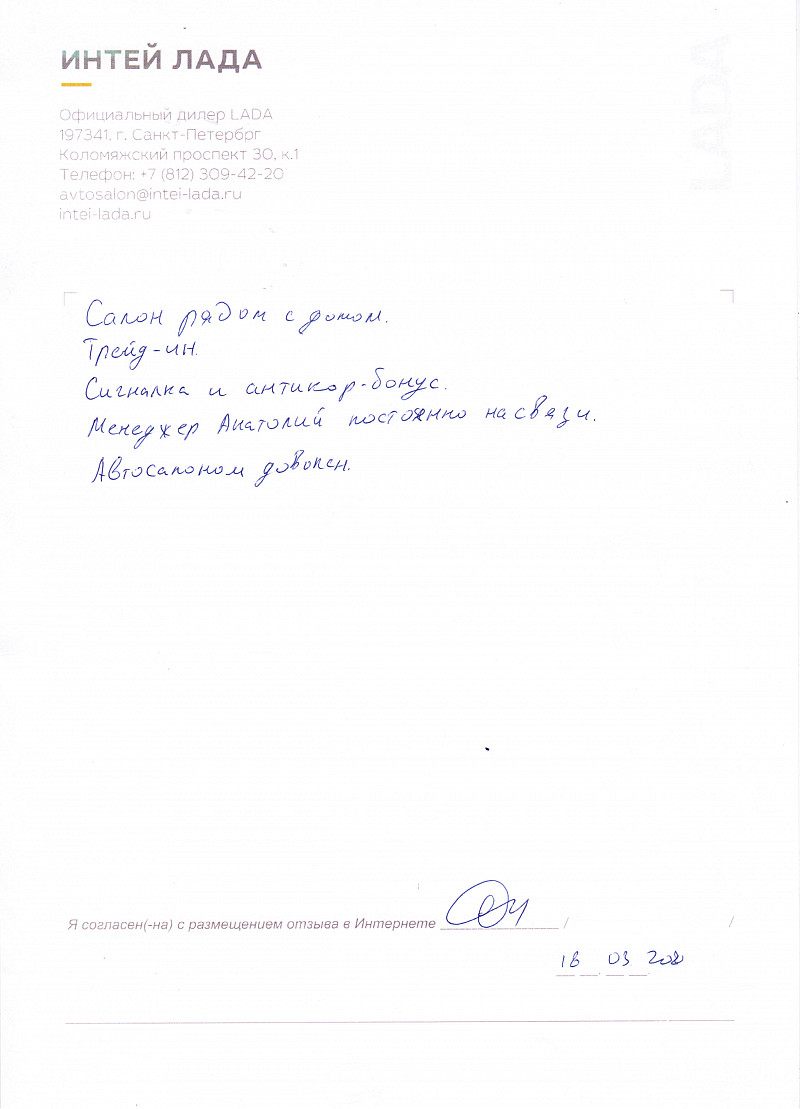 ИНТЕЙ ЛАДА
LADA
Официальный дилер LADA
197341, г. Санкт-Петербрг
Коломяжский проспект 30, к.1
Телефон: +7 (812) 309-42-20
avtosalon@intei-lada.ru
intei-lada.ru
Салон рядом с домом.
Трейд-ин.
Сигналка и антикор-бонус.
Менеджер Анатолий постоянно на связи.
Автосалоном доволен.
Я согласен(-на) с размещением отзыва в Интернете / /
18 03